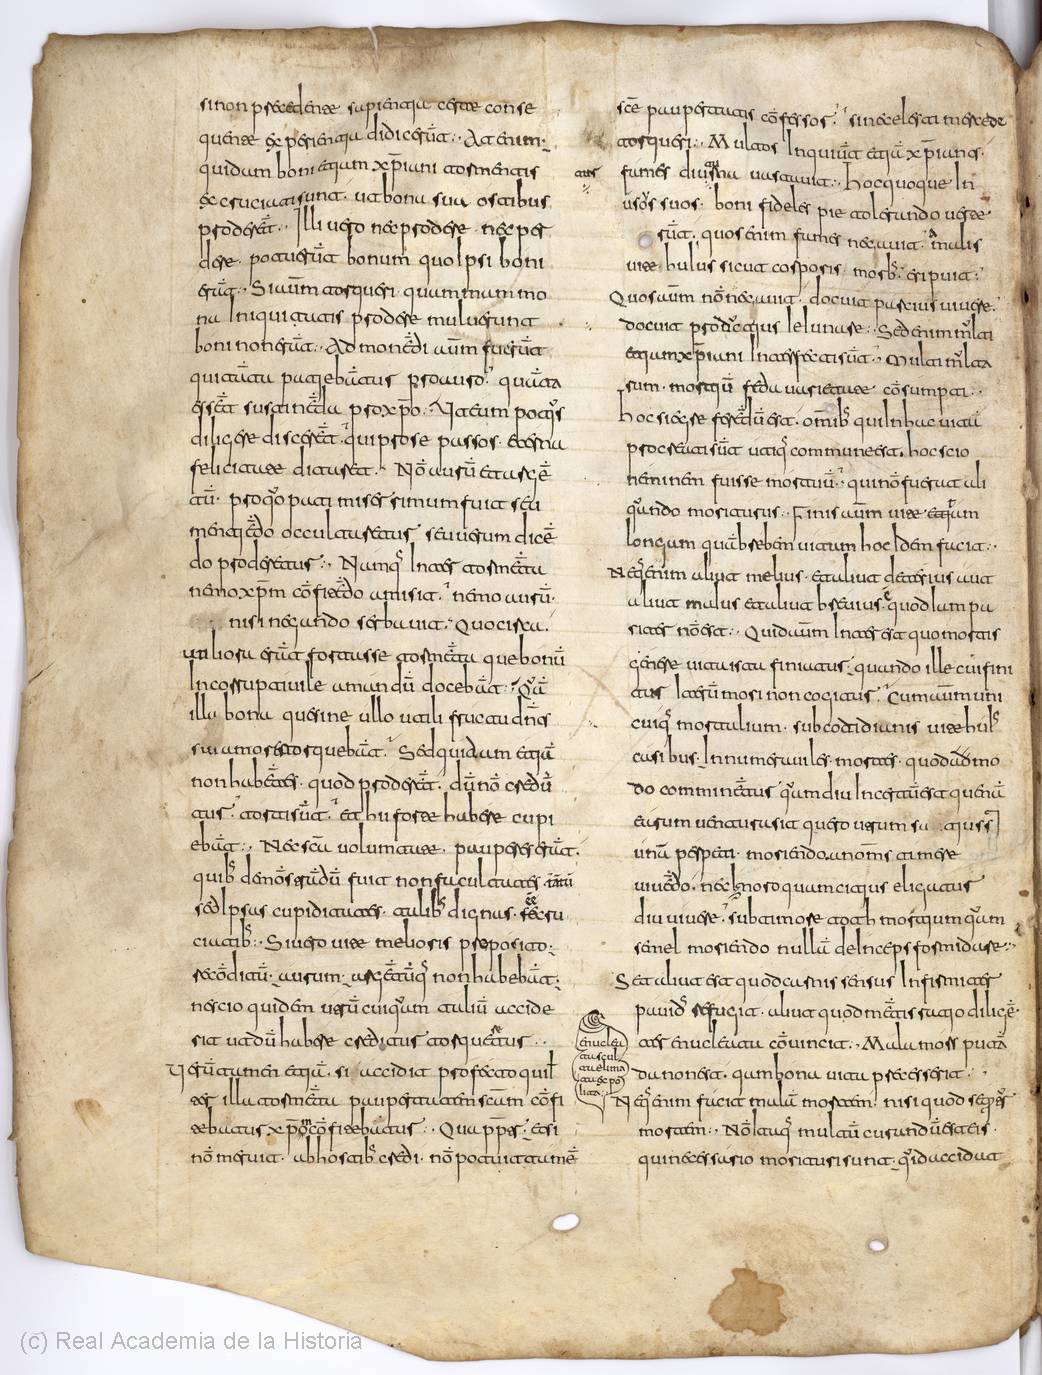 si non precedente sapientia certe conse
quente experientia didicerūt. At enim
quidam boni etiam xp̄iani tormentis
excruciati sunt. ut bona sua ostibus
proderēt. Illi vero nec prodere. nec per
dere. potuerūt bonum quo ipsi boni
erūt. Si aūm torqueri quam mammo
na iniquitatis prodere maluerunt
boni non erūt. Admonēdi aūm fuerūt
qui tāta patiebātur pro auro. quāta
essēt sustinēda pro xp̄o. Ut eum potius
diligere discerēt. qui pro se passos. eterna
felicitate ditaret. Nō aurū et argē
tū. pro quo pati miserrimum fuit seu
mentiēdo occultaretur seu verum dicē
do proderetur. Namq̄ inter tormēta
nemo xp̄m cōfitēdo amisit. nemo aurū.
nisi negando serbavit. Quocirca.
utiliora erāt fortasse tormēta que bonū
incorruptivile amandū docebāt. Quā
illa bona que sine ullo utili fructu dn̄os
sui amore torquebāt. Sed quidam etiā
non habētes. quod proderēt. dū nō credū
tur. torti sūt. Et hii forte habere cupi
ebāt. Nec scā volumtate. pauperes erāt.
quib; demōstrādū fuit non facultates.
sed ipsas cupiditates. talib; dignas. ee cru
ciatib;. Si vero vite melioris proposito.
recōditū. aurum. argētūq; non habebāt.
nescio quidem utrū cuiquam taliū accide
rit ut dū habere creditur torqueretur.
Verūtamen etiā. si accidit profecto qui in
ter illa tormēta paupertatem scām cōfi
tebatur xp̄m cōfitebatur. Quapp̄ter. etsi
nō meruit. ab hostib; credi. nō potuit tamē
scē paupertatis cōfessos. sine celesti mercede
torqueri. Multos inquiūt etiā xp̄ianos.
fames diuturna vastavit. Hoc quoque in
usos suos. boni fideles pie tolerando vere
rūt. quos enim fames necavit. malis
vite huius sicut corporis. morb; eripuit.
Quos aūm nō necavit. docuit parcius vivere.
docuit productius ieiunare. Sed enim multi
etiam xp̄iani interfecti sūt. Multi multa
rum. mortiū feda varietate cōsumpti.
Hoc si egre ferēdū est. omīb; qui in hac vitā
procreati sūt utiq; commune est. hoc scio
neminem fuisse mortuū. qui nō fuerat ali
quando moriturus. Finis aūm vite etiam
longam quā brebem vitam hoc idem facit.
Neq; enim aliut melius. et aliut deterius aut
aliut maius et aliut brevius. quod iam pa
riter nō est. Quid aūm interest quo mortis
genere vita ista finiatur. quando ille cui fini
tur iterū mori non cogitur. Cum aūm uni
cuiq; mortalium. sub cotidianis vite huius
casibus. innumeraviles mortes. quodammo
do comminētur quamdiu incertū est quenā
earum ventura sit quero utrum sa tius
unā perpeti. moriendo. an om̄s timere
vivēdo. nec ignoro quam citius eligatur
diu vivere. sub timore tot mortium quam
semel moriendo nullā deinceps formidare.
Set aliut est quod carnis sensus infirmiter
pavid; refugit. aliut quod mētis ratio diligē
ter enucleata cōvincit. Mala mors putā
da non est. quam bona vita precesserit.
Neq; enim facit malā mortem. nisi quod sequitur
mortem. Nō itaq; multū curandū est eis.
qui necessario morituri sunt. quid accidat
enuclea
ta scul
ta elima
ta expo
lita